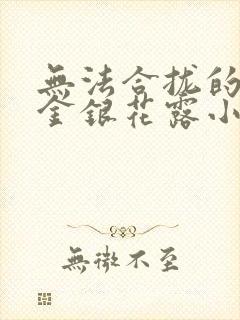 無法合拢的
金銀花露小
無微不至